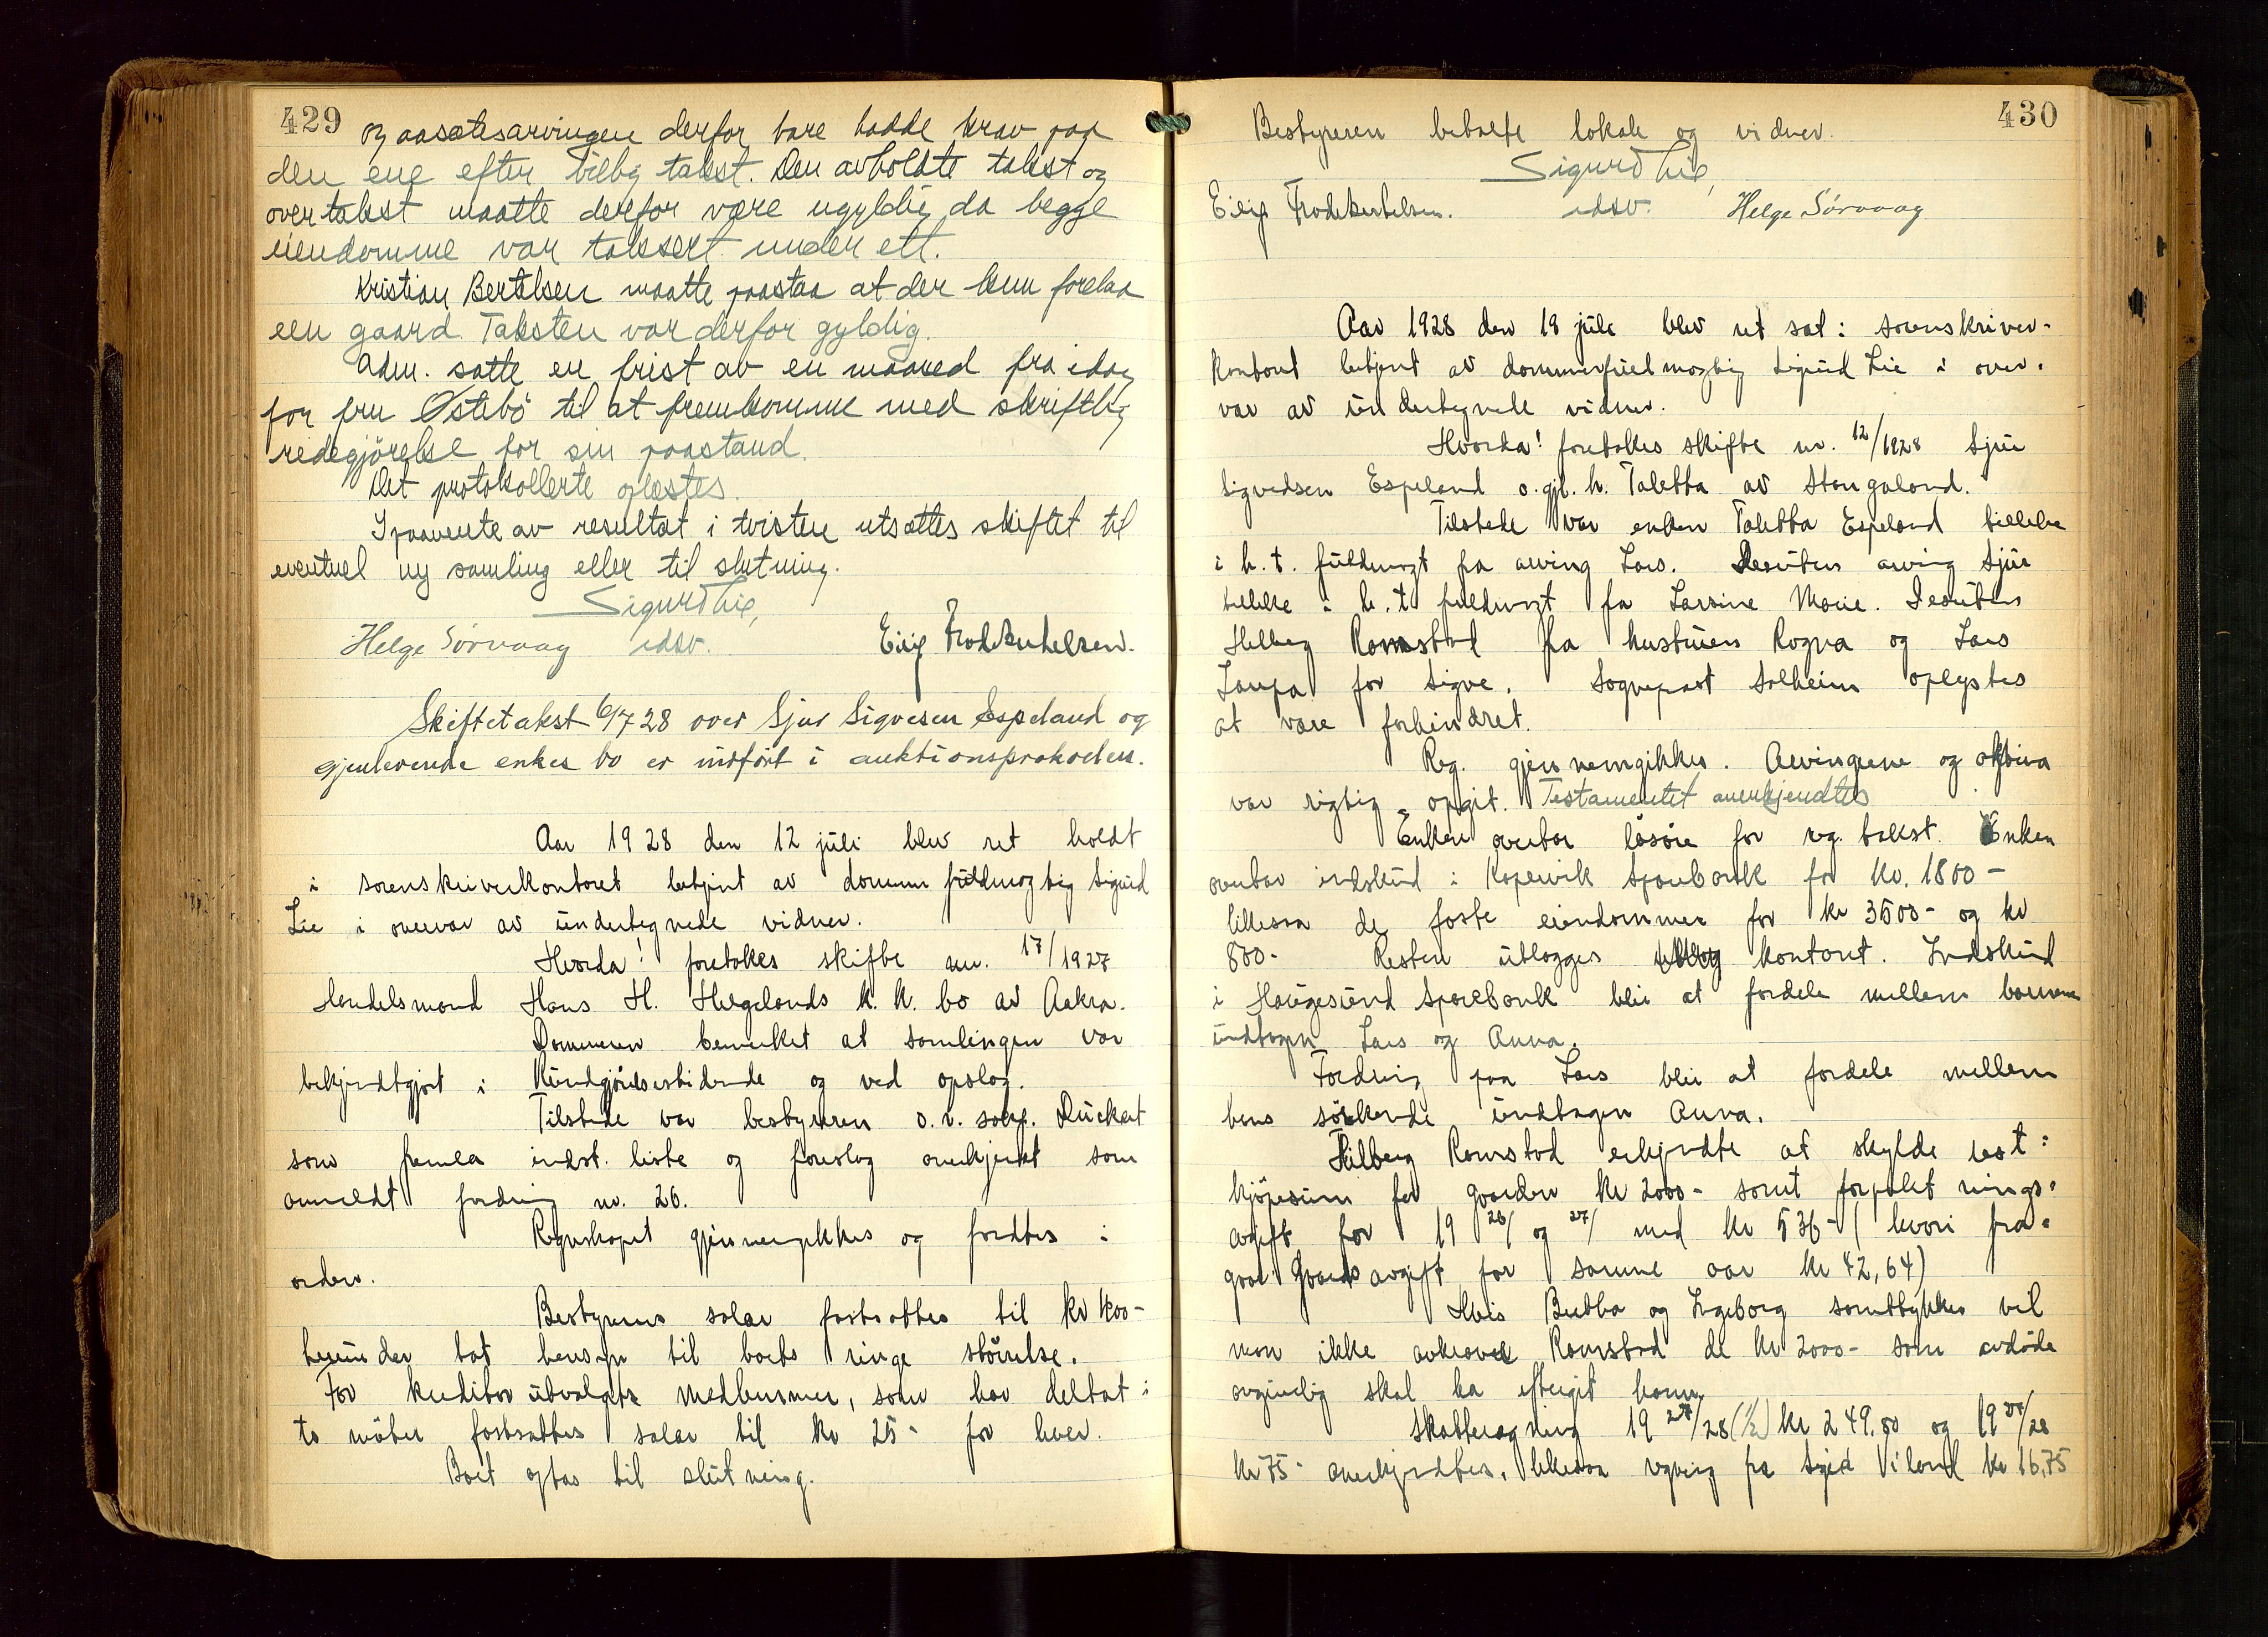 429
og aasætesarvingene derfor bare hadde krav paa
den ene efter billig takst. Den avholdte takst og
overtakst maatte derfor være ugyldig da begge
eiendomme var taksert under ett.
Kristian Bertelsen maatte paastaa at der kun forelaa
een gaard. Taksten var derfor gyldig.
Adm. satte en frist av en maaned fra idag
for fru Østebö til at fremkomme med skriftlig
redegjörelse for sin paastand.
Det protokollerte oplæstes.
I paavente av resultat i tvisten utsættes skiftet til
eventuel ny samling eller til slutning.
Sigurd Lie,
Helge Sörvaag edsv. Eilif
Skiftetakst 6/7 28 over Sjur Sigvesen Espeland og
gjenlevende enkes bo er indfört i auktionsprokollen.
Aar 1928 den 12 juli blev ret holdt
i sorenskriverkontoret betjent av dommerfuldmægtig Sigurd
Lie i overvær av undertegnede vidner.
Hvorda! foretokes skifte nr. 17/1927
Handelsmand Hans H. Helgelands k. k. bo av Aakra.
Dommeren bemerket at samlingen var
bekjendtgjort i Kundgjörelsestidende og ved opslag.
Tilstede var bestyreren o.r. sakf. Rückert
som fremla indst. liste og foreslog anerkjent som
anmeldt fordring nr. 26.
Regnskapet gjennemgikkes og fandtes i
orden.
Bestyrerens salær fastsattes til kr 400-
herunder tat hensyn til boets ringe störrelse.
For kreditorutvalgets medlemmer, som har deltat i
to möter fastsattes salær til kr 25- for hver.
Boet optas til slutning.
430
Bestyreren betalte lokale og vidner.
Sigurd Lie,
Eilif edsv. Helge Sörvaag
Aar 1928 den 18 juli blev ret sat i sorenskriver-
kontoret betjent av dommerfuldmægtig Sigurd Lie i over-
vær av undertegnede vidner.
Hvorda! foretokes skifte nr. 12/1928 Sjur
Sigvedsen Espeland o. gjl. h. Taletta av Stangaland.
Tilstede var enken Taletta Espeland tillike
i h. t. fuldmagt fra arving Lars. Desuten arving Sjur
tillike i h. t. fuldmagt fra Larsine Marie. Desuten
Helberg Ramstad fra hustruen Ragna og Lars
for Sigve. Sogneprest Solheim oplystes
at være forhindret.
Reg. gjennemgikkes. Arvingene og aktiva
var rigtig opgit. Testamentet anerkjendtes
Enken overtar lösöre for reg. takst. Enken
overtar indskud i Kopervik Sparebank for kr. 1800-
likesaa de faste eiendommer for kr 3500- og kr
800- Resten utlægges kontant. Indskud
i Haugesund Sparebank blir at fordele mellem barnene
undtagen Lars og Anna.
Fordring paa Lars blir at fordele mellem
hans söskende undtagen Anna.
Hilberg Ramstad erkjendte at skylde rest
kjöpesum for gaarden kr 2000- samt forpaktnings-
avgift for 19 26/ og 27/ med kr 536- (hvori fra-
gaar Gaards avgift for samme aar kr 42,64)
Hvis Berta og Ingeborg samtykker vil
man ikke avkræve Ramstad de kr 2000- som avdöde
angivelig skal ha eftergit ham.
Skatteregning 19 27/28 (1/2) kr 249,80 og 19 27/28
kr 75- anerkjendtes, likesaa regning fra kr 16,75